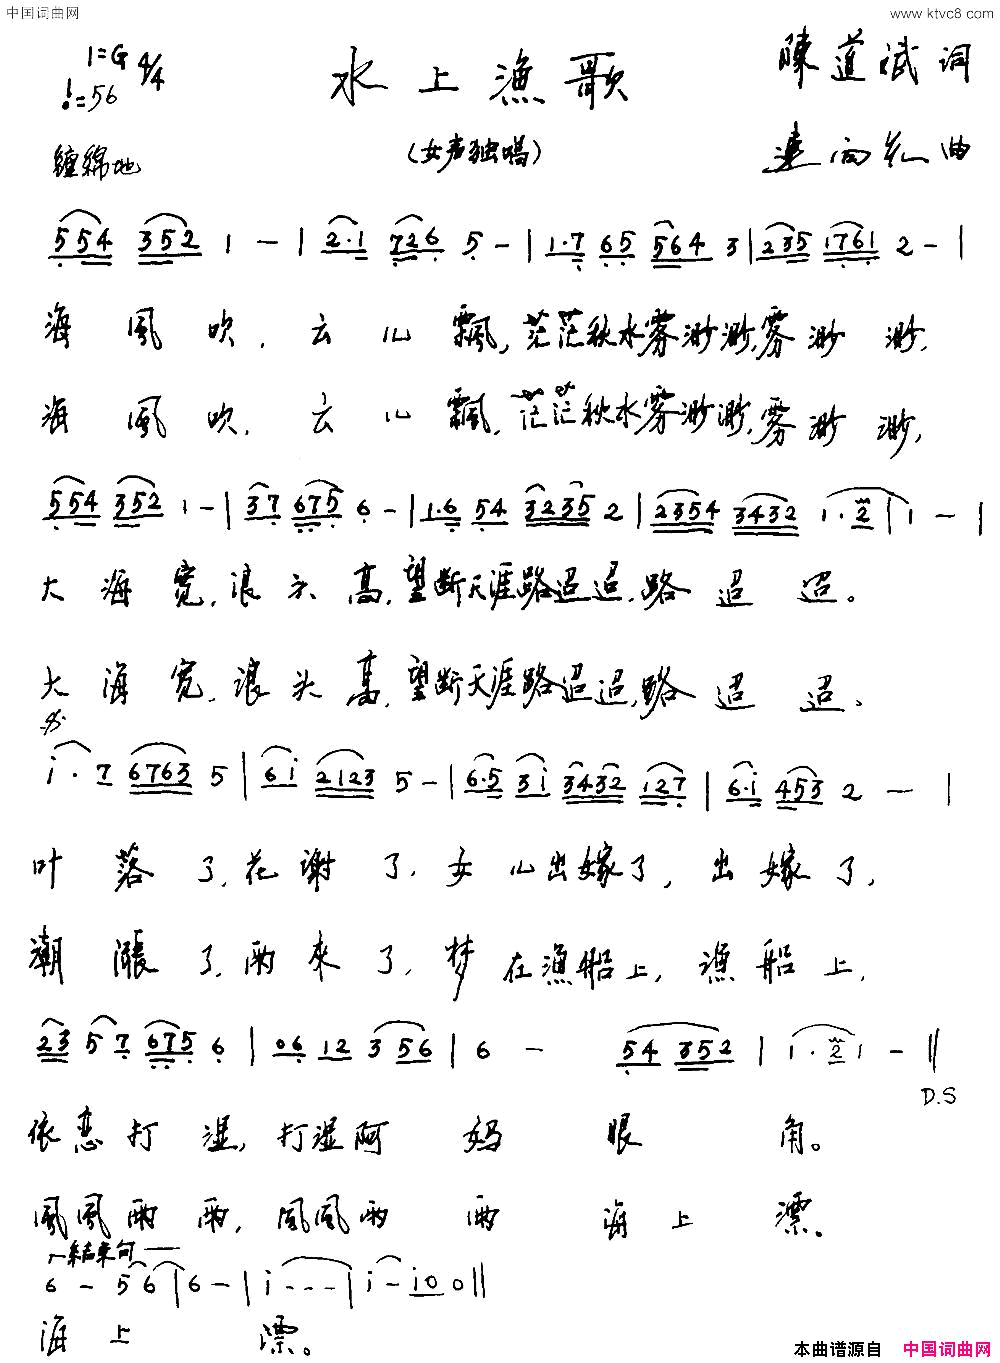 中国词曲网 www.ktvc8.com
1=G 4/4
水上漁歌
陳道斌词
=56
纏綿地
(女声独唱)
連向先曲
554 352 1 — | 2·1 726 5 — | 1·7 65 564 3 | 235 1761 2 — |
海風吹，云儿飄，茫茫秋水雾渺渺，雾渺渺，
海風吹，云儿飄，茫茫秋水雾渺渺，雾渺渺，
554 352 1 — | 37 675 6 — | 1·6 54 3235 2 | 2354 3432 1·2 | 1 — |
大海宽，浪头高，望断天涯路迢迢，路迢迢。
大海宽，浪头高，望断天涯路迢迢，路迢迢。
i·7 6763 5 | 6i 2123 5 — | 6·5 3i 3432 127 | 6·i 453 2 — |
叶落了，花谢了，女儿出嫁了，出嫁了，
潮漲了，雨來了，梦在漁船上，漁船上，
23 5 7 675 6 | 06 12 3 56 | 6 — 54 352 | 1·2 1 — ||
D.S
依恋打湿，打湿阿妈眼角。
風風雨雨，風風雨雨海上漂。
結束句
6 — 5 6 | 6 — | i - - - | i — i00 ||
海上漂。
本曲谱源自 中国词曲网